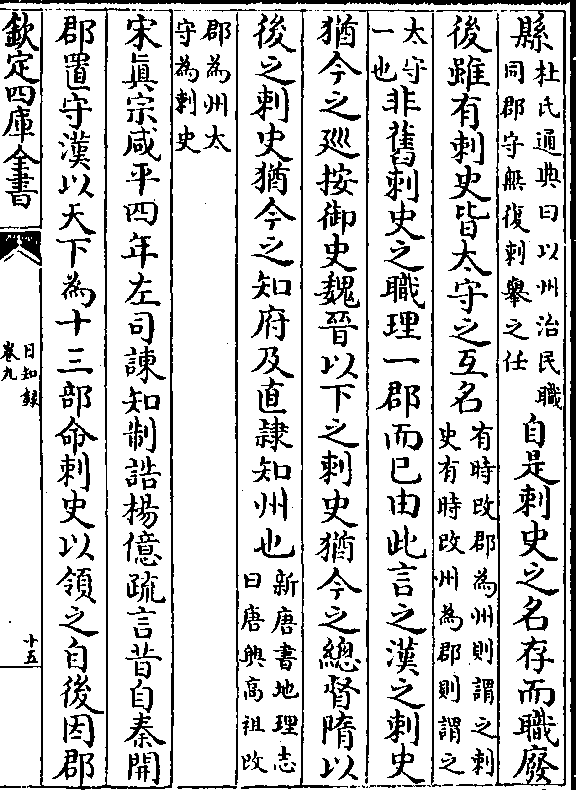 縣杜氏通典曰以州治民職同郡守無復刺舉之任自是刺史之名存而職廢
後雖有刺史皆太守之互名有時改郡為州則謂之刺史有時改州為郡則謂之
太守一也非舊刺史之職理一郡而已由此言之漢之刺史
猶今之廵按御史魏晉以下之刺史猶今之總督隋以
後之刺史猶今之知府及直隷知州也新唐書地理志曰唐興高祖改
郡為州太守為刺史
宋真宗咸平四年左司諫知制誥楊億疏言昔自秦開
郡置守漢以天下為十三部命刺史以領之自後因郡
欽定四庫全書
日知録
卷九
十五